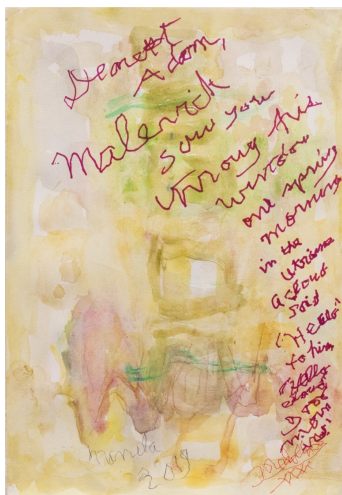 Dearest
Adam,
Malevich
saw you
through this
window
one spring
morning
in the
Ukraine
a cloud
said
"Hello"
to him
"Hello
cloud
2019